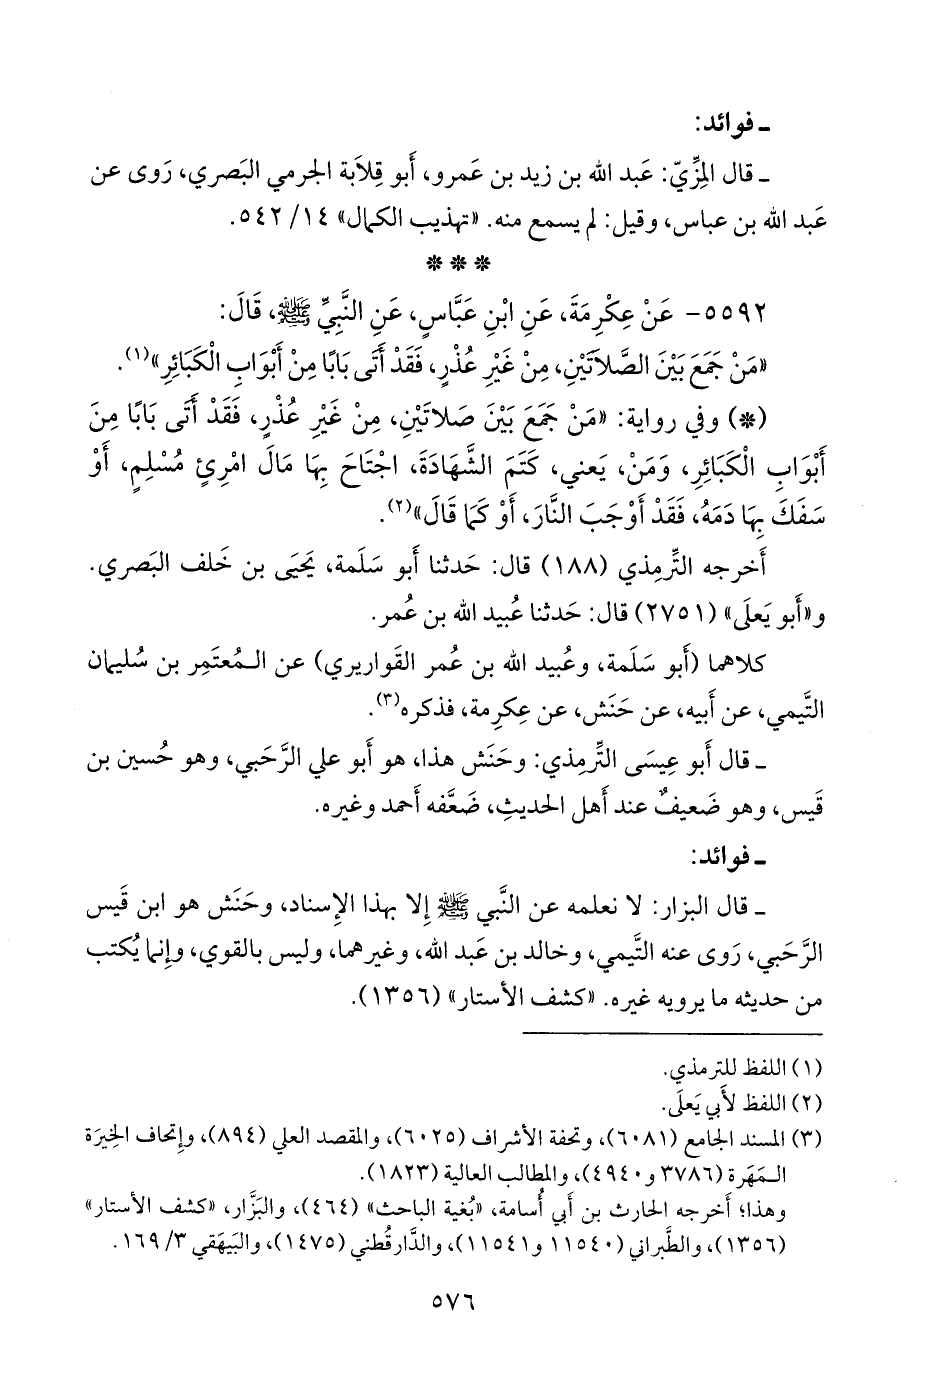 ـ فوائد:
ـ قال المِزِّيّ: عَبد الله بن زيد بن عَمرو، أَبو قِلاَبة الجرمي البَصري، رَوى عن
عَبد الله بن عباس، وقيل: لم يسمع منه. «تهذيب الكمال» ١٤/ ٥٤٢.
* * *
٥٥٩٢- عَنْ عِكْرِمَةَ، عَنِ ابْنِ عَبَّاسٍ، عَنِ النَّبِيِّ ﷺ، قَالَ:
«مَنْ جَمَعَ بَيْنَ الصَّلاَتَيْنِ، مِنْ غَيْرِ عُذْرٍ، فَقَدْ أَتَى بَابًا مِنْ أَبْوَابِ الْكَبَائِرِ»(١).
(*) وفي رواية: «مَنْ جَمَعَ بَيْنَ صَلاَتَيْنِ، مِنْ غَيْرِ عُذْرٍ، فَقَدْ أَتَى بَابًا مِنَ
أَبْوَابِ الْكَبَائِرِ، وَمَنْ، يَعني، كَتَمَ الشَّهَادَةَ، اجْتَاحَ بِهَا مَالَ امْرِئٍ مُسْلِمٍ، أَوْ
سَفَكَ بِهَا دَمَهُ، فَقَدْ أَوْجَبَ النَّارَ، أَوْ كَمَا قَالَ»(٢).
أَخرجه التِّرمِذي (١٨٨) قال: حَدثنا أَبو سَلَمة، يَحيَى بن خَلف البَصري.
و«أَبو يَعلَى» (٢٧٥١) قال: حَدثنا عُبيد الله بن عُمر.
كلاهما (أَبو سَلَمة، وعُبيد الله بن عُمر القَواريري) عن الـمُعتَمِر بن سُليمان
التَّيمي، عن أَبيه، عن حَنَش، عن عِكرِمة، فذكره(٣).
ـ قال أَبو عِيسَى التِّرمِذي: وحَنَش هذا، هو أَبو علي الرَّحَبي، وهو حُسين بن
قَيس، وهو ضَعيفٌ عند أَهل الحديثِ، ضَعَّفه أَحمد وغيره.
ـ فوائد:
ـ قال البزار: لا نعلمه عن النَّبي ﷺ إِلا بهذا الإِسناد، وحَنَش هو ابن قَيس
الرَّحَبي، رَوى عنه التَّيمي، وخالد بن عَبد الله، وغيرهما، وليس بالقوي، وإِنما يُكتب
من حديثه ما يرويه غيره. «كشف الأستار» (١٣٥٦).
(١) اللفظ للترمذي.
(٢) اللفظ لأَبي يَعلَى.
(٣) المسند الجامع (٦٠٨١)، وتحفة الأشراف (٦٠٢٥)، والمقصد العلي (٨٩٤)، وإتحاف الخِيرَة
الـمَهَرة (٣٧٨٦ و٤٩٤٠)، والمطالب العالية (١٨٢٣).
وهذا؛ أَخرجه الحارث بن أَبي أُسامة، «بُغية الباحث» (٤٦٤)، والبَزَّار، «كشف الأستار»
(١٣٥٦)، والطَّبراني (١١٥٤٠ و١١٥٤١)، والدَّارقُطني (١٤٧٥)، والبَيهَقي ٣/ ١٦٩.
٥٧٦